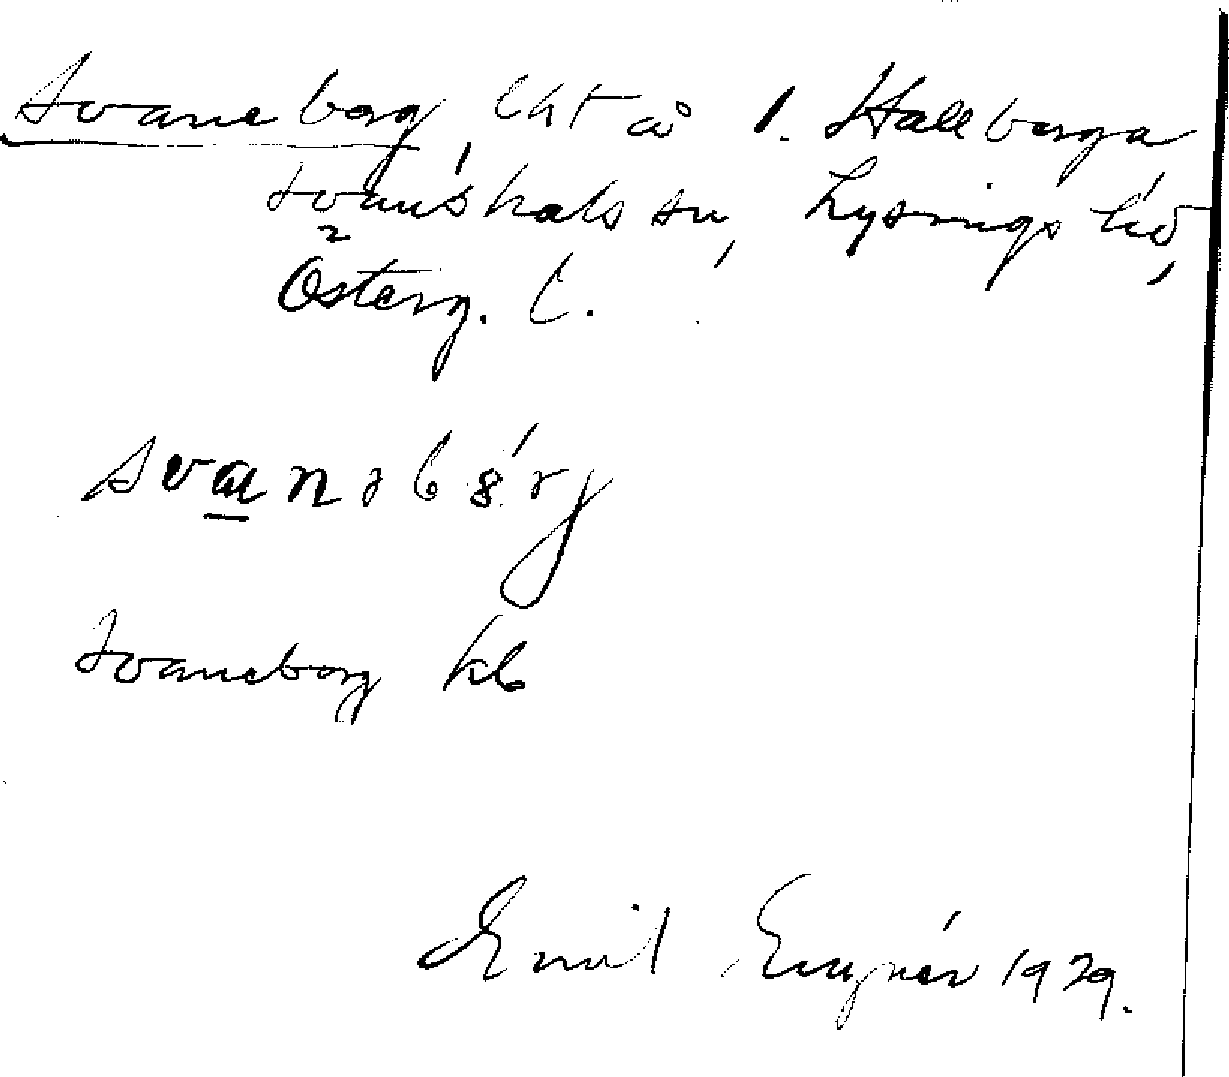 Svaneborg, lht å 1. Hallberga
Svanshals sn, Lysings hd,
Österg. l.
Svaneborg kb
Emil Engnér 1929.